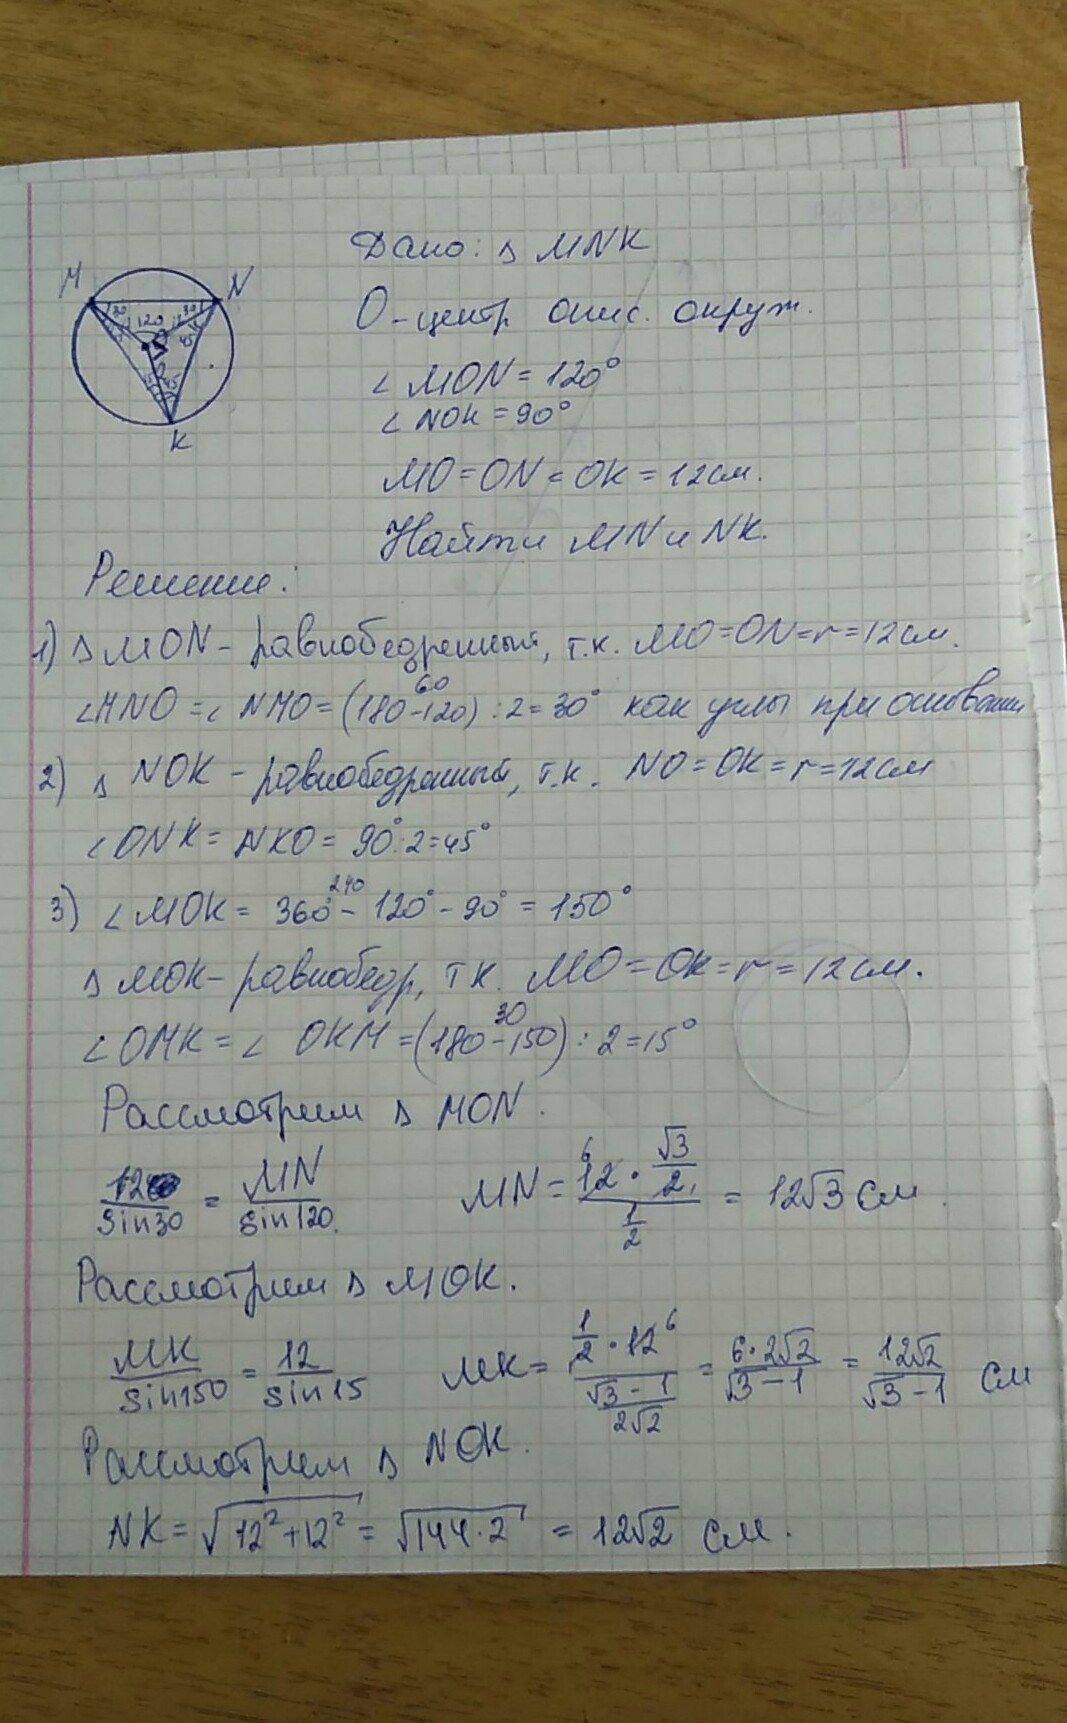 M N
30 30
120
45
45
K
Дано: △ MNK
O - центр опис. окруж.
∠ MON = 120°
∠ NOK = 90°
MO = ON = OK = 12 см.
Найти MN и NK.
Решение:
1) △ MON - равнобедренный, т.к. MO = ON = r = 12 см.
60
∠MNO = ∠ NMO = (180 - 120) : 2 = 30° как углы при основании
2) △ NOK - равнобедренный, т.к. NO = OK = r = 12 см
∠ ONK = NKO = 90° : 2 = 45°
240
3) ∠ MOK = 360° - 120° - 90° = 150°
△ MOK - равнобедр, т к. MO = OK = r = 12 см.
30
∠ OMK = ∠ OKM = (180 - 150) : 2 = 15°
Рассмотрим △ MON.
12/sin30 = MN/sin120. MN = (12⁶ · √3/2₁)/(1/2) = 12√3 см.
Рассмотрим △ MOK.
MK/sin150 = 12/sin15 MK = (1/2 · 12⁶)/((√3 - 1)/(2√2)) = (6 · 2√2)/(√3 - 1) = 12√2/(√3 - 1) см
Рассмотрим △ NOK.
NK = √(12² + 12²) = √(144 · 2) = 12√2 см.